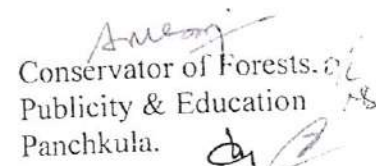 Conservator of Forests.
Publicity & Education
Panchkula.